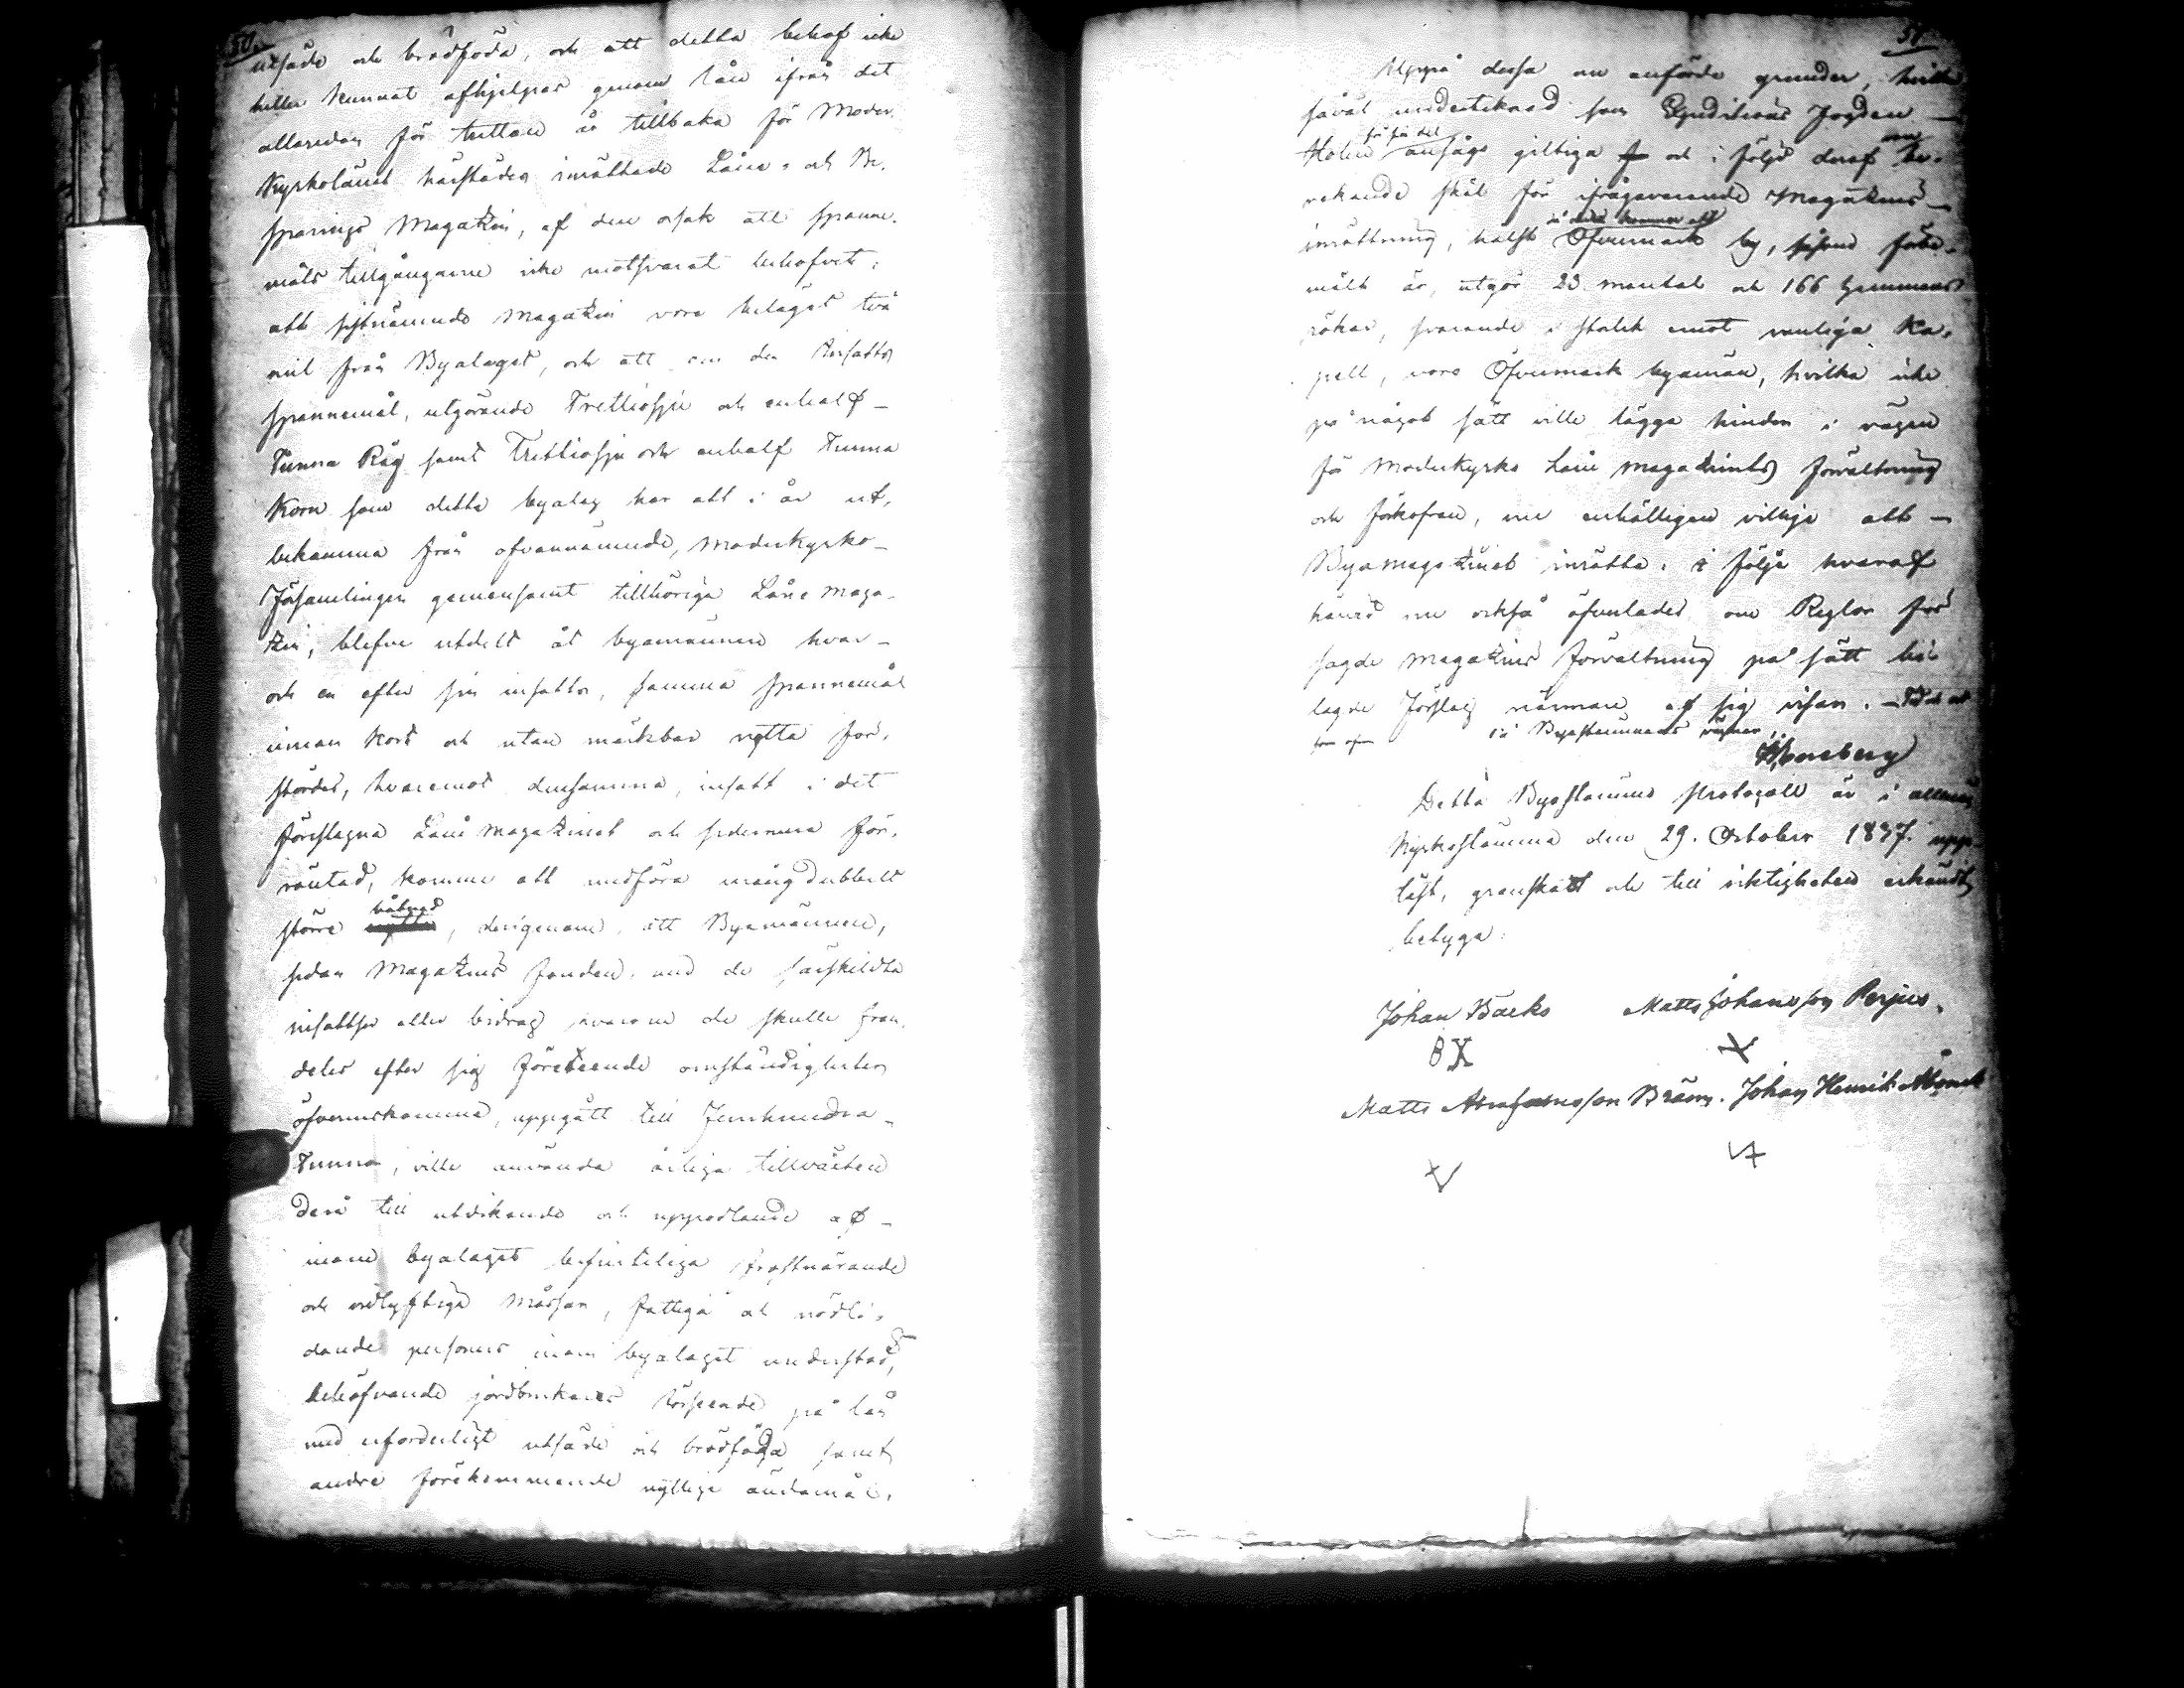 50.
utsäde och brödföda, och att detta behof icke
heller kunnat afhjelpas genom lån ifrån det
allaredan för trettan år tillbaka för Moder-
Kyrkolänet härstädes inrättade Låne- och Be-
sparings Magazin, af den orsak att spanne-
måls tillgångarne icke motsvarat behofvet;
att sistnämnde Magazin vore belägit två
mil från Byalaget, och att om den insatta
spannemål, utgörande Trettiosju och enhalf
Tunna Råg samt Trettiosju och enhalf Tunna
Korn som detta byalag har att i år ut-
bekomma från ofvannämnde, Moderkyrko-
Församlingen gemensamt tillhöriga Låne Maga-
zin, blefve utdelt åt byamännen hvar
och en efter sin insatts, samma spannemål
innan kort och utan märkbar nytta för-
stördes, hvaremot densamma, insatt i det
föreslagna Låne Magazinet och sedermera för-
räntad, komme att medföra mångdubbelt
större båtnad, derigenom, att Byamännen,
sedan Magazins fonden, med de särskildta
insattser eller bidrag hvarom de skulle fram-
deles efter sig företeende omständigheter
öfverenskomma, uppgått till Femhundra
Tunnor, ville använda årliga tillväxten
deraf till utdikande och uppodlande af
inom byalaget befinteliga frostnärande
och vidlyftiga Mossar, fattiga och nödli-
dande personers inom byalaget understöd,
behöfvande jordbrukares förseende på lån
med erforderligt utsäde och brödföda samt
andre förekommande nyttige ändamål.
51.
Uppå dessa nu anförda grunder, hvilka
såväl undertecknad som Expeditions Fogden
Holm ansågo giltiga och i följd deraf
rekande skäl för ifrågavarande Magazins
inrättning, hälst Öfvermark by, såsom före-
mält är, utgör 23 mantal och 166 hemmans
rökar, svarande i storlek emot vanliga Ka-
pell, vore Öfvermark byamän, hvilka icke
på något sätt ville lägga hinder i vägen
för Moderkyrko Låne Magazinets förvaltning
och förkofran, nu enhälligen villige att
Byamagazinet inrätta; i följe hvaraf
händ nu också öfverlades om Reglor för
sagde Magazins förvaltning på sätt bi-
lagde Förslag närmare af sig visar. - Tid och
som ofvan
på Byastämmans vägnar
Detta Byastämmo Protocoll är i allmän
Kyrkostämma den 29. October 1837 upp-
läst, granskadt och till riktigheten erkändt
betyga:
Johan Backs Matts Johansson Perjus
Matts Abrahamsson Bräns. Johan Henrik